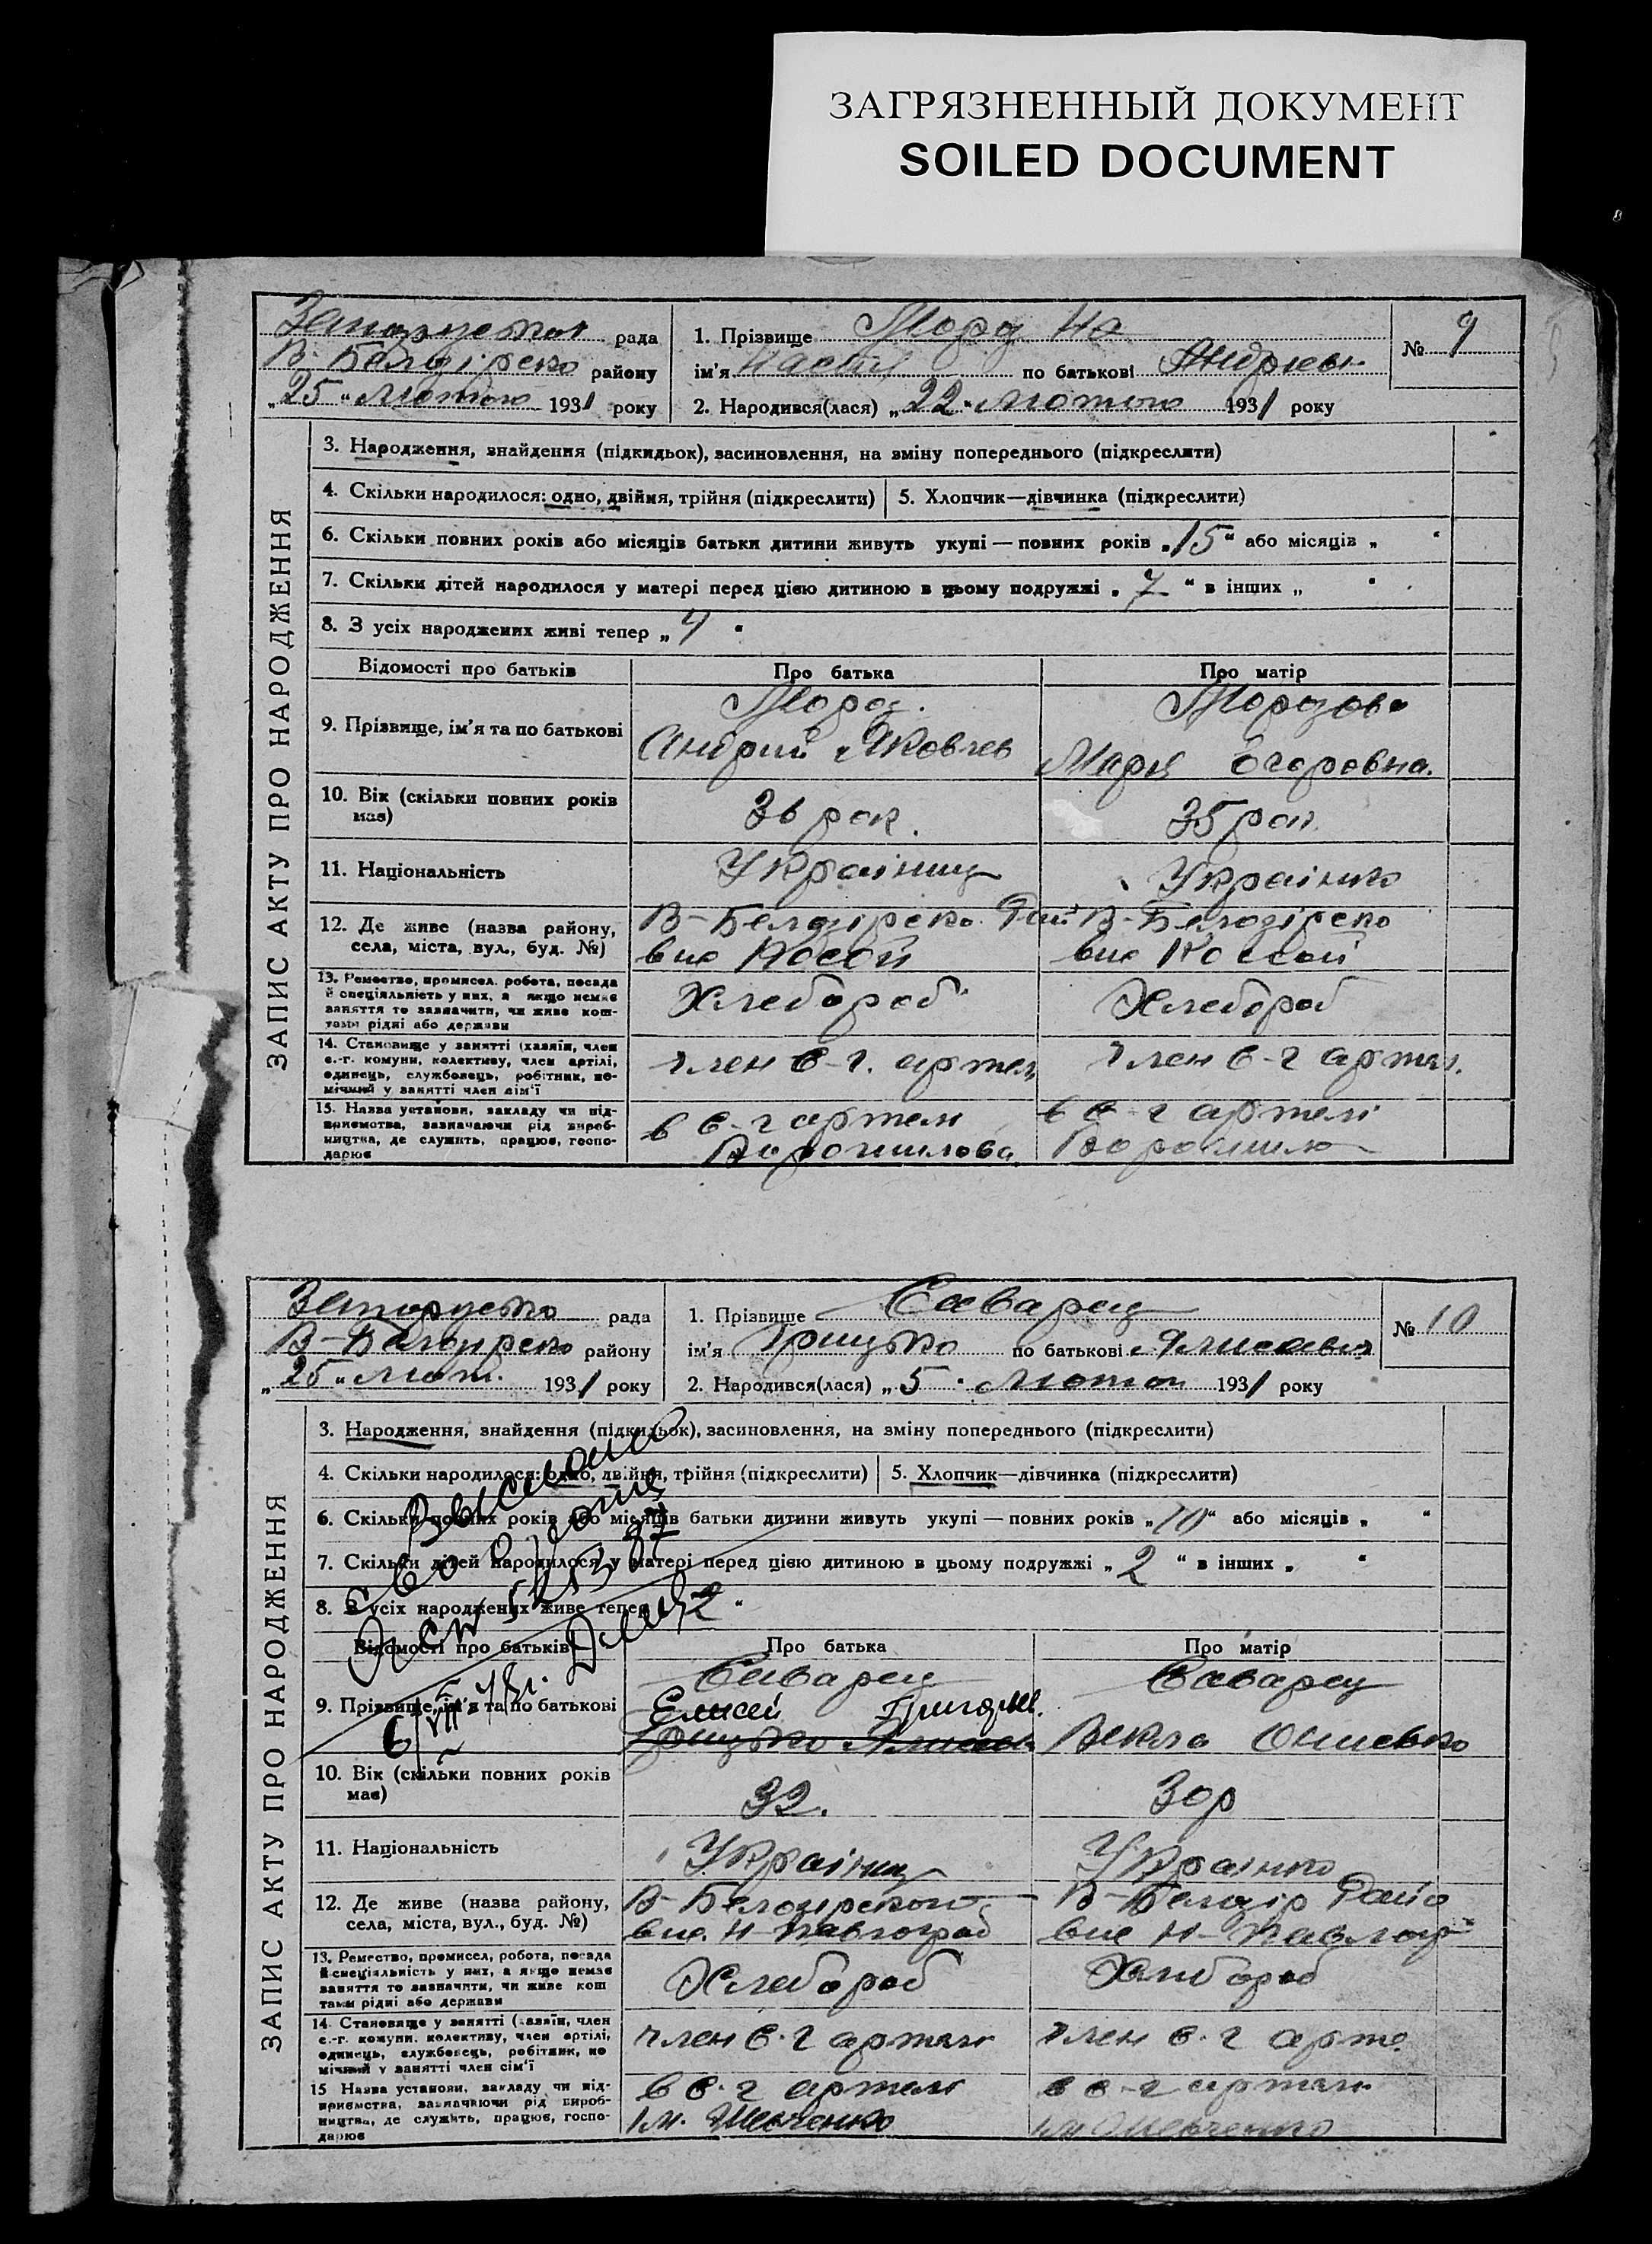 ЗАГРЯЗНЕННЫЙ ДОКУМЕНТ
SOILED DOCUMENT
рада
В-Белозірско району
„25" Лютого 1931 року
1. Прізвище Мороз
ім'я по батькові Андріев
2. Народився(лася) „22" Лютого 1931 року
№ 9
ЗАПИС АКТУ ПРО НАРОДЖЕННЯ
3. Народження, знайдення (підкидьок), засиновлення, на зміну попереднього (підкреслити)
4. Скільки народилося: одно, двійня, трійня (підкреслити)
5. Хлопчик—дівчинка (підкреслити)
6. Скільки повних років або місяців батьки дитини живуть укупі — повних років „15" або місяців „ "
7. Скільки дітей народилося у матері перед цією дитиною в цьому подружжі „7" в інших „ "
8. З усіх народжених живі тепер „4"
Відомості про батьків
Про батька
Про матір
9. Прізвище, ім'я та по батькові
Мороз.
Андрий Яковлев
Морозова
Мария Егоровна.
10. Вік (скільки повних років
має)
36 рок.
35 рок
11. Національність
Українец
Українка
12. Де живе (назва району,
села, міста, вул., буд. №)
В-Белозірско Рай
В-Белозірско
13. Ремество, промисел, робота, посада
й спеціяльність у них, а якщо немає
заняття то зазначити, чи живе кош-
тами рідні або держави
Хлебороб
Хлебороб
14. Становище у занятті (хазяїн, член
с.-г. комуни, колективу, член артілі,
одинець, службовець, робітник, по-
мічний у занятті член сім'ї
член с-г. артел
член с-г артел.
15. Назва установи, закладу чи під-
приємства, зазначаючи рід вироб-
ництва, де служить, працює, госпо-
дарює
в с-г артели
Ворошилова
в с-г артелі
Ворошило
рада
В-Белозірско району
„25" Лют. 1931 року
1. Прізвище Саварец
ім'я Грицько по батькові
2. Народився(лася) „5" Лютого 1931 року
№ 10
ЗАПИС АКТУ ПРО НАРОДЖЕННЯ
3. Народження, знайдення (підкидьок), засиновлення, на зміну попереднього (підкреслити)
4. Скільки народилося: одно, двійня, трійня (підкреслити)
5. Хлопчик—дівчинка (підкреслити)
6. Скільки повних років або місяців батьки дитини живуть укупі — повних років „10" або місяців „ "
7. Скільки дітей народилося у матері перед цією дитиною в цьому подружжі „2" в інших „ "
8. З усіх народжених живе тепер „2"
Відомості про батьків
Про батька
Про матір
9. Прізвище, ім'я та по батькові
Саварец
Елисей Григор.
Саварец
Векла
10. Вік (скільки повних років
має)
32.
30 р
11. Національність
Українец
Українка
12. Де живе (назва району,
села, міста, вул., буд. №)
В-Белозірского
Н-Павлоград
В-Белозір Райо
13. Ремество, промисел, робота, посада
й спеціяльність у них, а якщо немає
заняття то зазначити, чи живе кош
тами рідні або держави
Хлебороб
Хлебороб
14. Становище у занятті (хазяїн, член
с.-г. комуни, колективу, член артілі,
одинець, службовець, робітник, по
мічний у занятті член сім'ї
член с-г артели
член с-г арте.
15 Назва установи, закладу чи під-
приємства, зазначаючи рід вироб-
ництва, де служить, працює, госпо-
дарює
в с-г артели
ім. Шевченко
в с-г артели
ім Шевченко